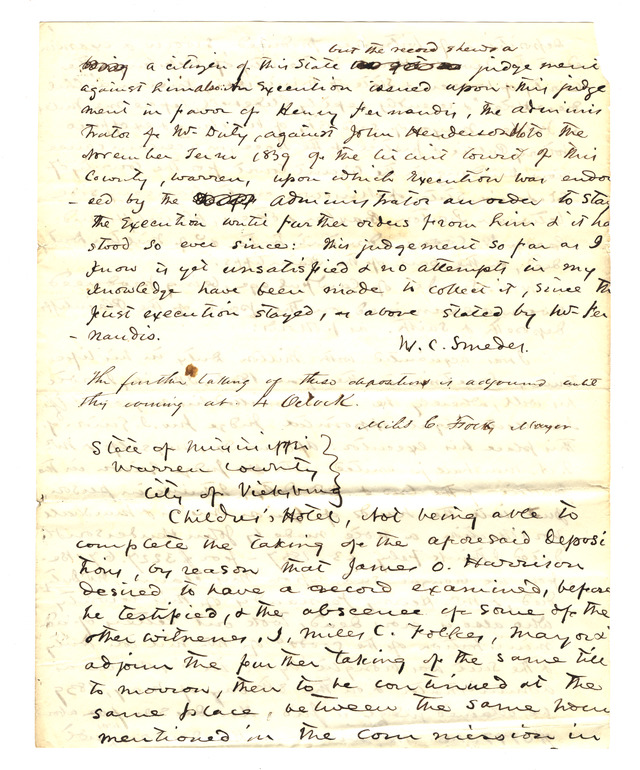 but the record shews a
a citizen of this State judgement
against him also. An Execution issued upon this judge
ment in favor of Henry Fernandis, the adminis
trator of Mr Duty, against John Henderson to the
November Term 1839 of the Circuit Court of this
County, Warren, upon which Execution was endor
- eed by the administrator an order to stay
the Execution until further orders from him & it ha
stood so ever since: This judgement so far as I
know is yet unsatisfied & no attempts in my
knowledge have been made to collect it, since th
first execution stayed, as above stated by Mr Fer
- nandis.
W. C. Smedes.
The further taking of these depositions is adjourned until
this evening at 4 Oclock.
Miles C. Folkes Mayor
State of Mississippi }
Warren County }
City of Vicksburg }
Childres's Hotel, Not being able to
complete the taking of the aforesaid deposi
tions, by reason that James O. Harrison
desired to have a record examined, before
he testified, & the abscence of some of the
other witnesses, I, Miles C. Folkes, Mayor
adjourn the further taking of the same till
to morrow, then to be continued at the
same place, between the same hours
mentioned in the commission in